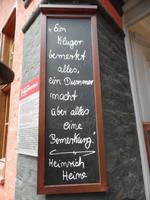 „Ein
Kluger
bemerkt
alles,
ein Dummer
macht
über alles
eine
Bemerkung."
Heinrich
Heine